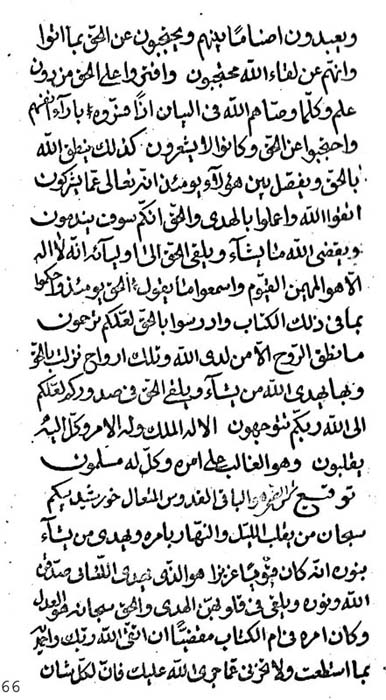 ويعبدون اصناما بينهم ويحتجبون عن الحق بما اتوا
وانهم عن لقاء الله محتجبون وافتروا على الحق من دون
علم وكلما وصاهم الله فى البيان اذًا فسروه بارآء انفسهم
واحتجبوا عن الحق وكانوا لا يشعرون كذلك ينطق الله
بالحق ويفصل بين هؤلآء يومئذ انه تعالى عما يشركون
اتقوا الله واعملوا بالهدى والحق انكم سوف
ويقضى الله ما يشآء ويلقى الحق الى انه لا اله
الا هو المهيمن القيوم واسمعوا ما يقول الحق يومئذ واحكموا
بما فى ذلك الكتاب وادرسوا بالحق لعلكم ترحمون
ما نطق الروح الا من لدى الله وتلك ارواح نزلت بالحق
وبها يهدى الله من يشآء ويلقى الحق فى صدوركم لعلكم
الى الله ربكم تتوجهون الا له الملك وله الامر وكل اليه
يقلبون وهو الغالب على امره وكل له مسلمون
توقيع الباقى القدوس المتعال
سبحان من يقلب الليل والنهار بامره ويهدى من يشآء
بنوره انه كان قويا عزيزا هو الذى
الله ونوره ويلقى فى قلوبهن الهدى والحق سبحانه
وكان امره فى ام الكتاب مقضيًا ان اتقى الله ربك
بما استطعت ولا تحزنى عما جرى الله عليك فان لكل شان
66